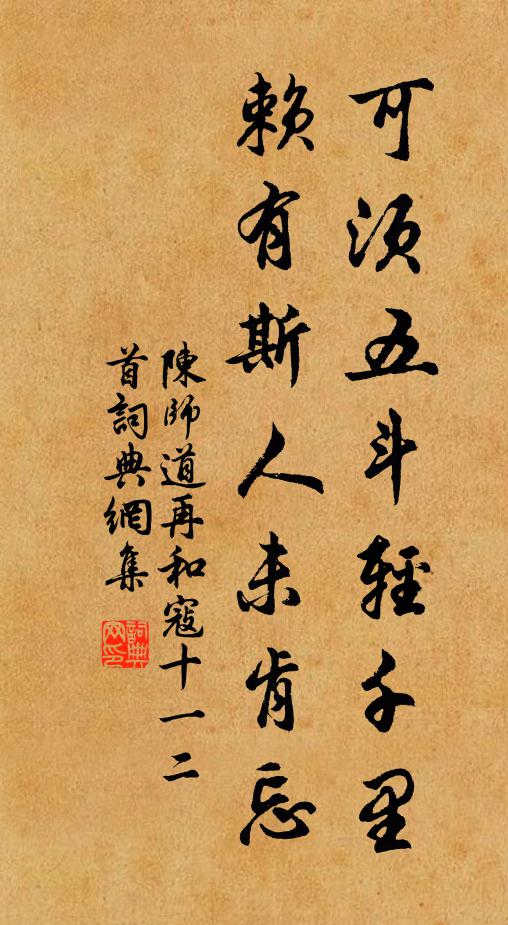 可須五斗輕千里
賴有斯人未肯忘
陳師道再和寇十一二
首詞典網集
詞典
网印